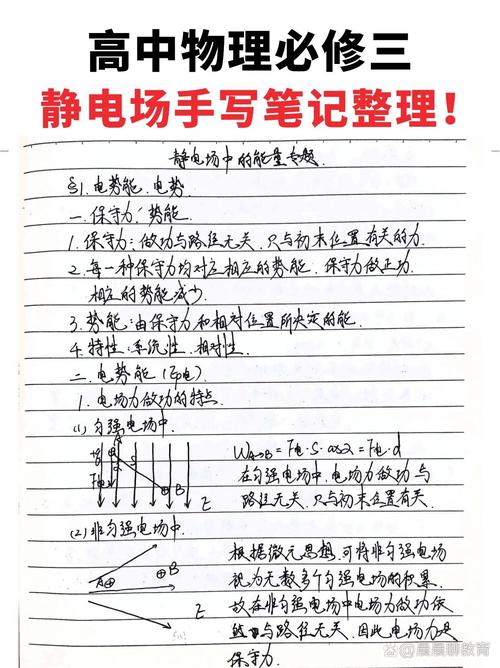 高中物理必修三
静电场手写笔记整理！
静电场中的能量专题.
§1. 电势能、电势
一. 保守力、势能
1. 保守力：做功与路径无关，只与初末位置有关的力.
2. 每一种保守力均对应相应的势能. 保守力做正功.
相应的势能减少.
3. 势能：由保守力和相对位置所决定的能.
4. 特性：系统性、相对性.
二. 电势能 (Ep电)
1. 电场力做功的特点
(1) 匀强电场中.
A
B
E
WA→B = F电·S·cosα = F电·d
在匀强电场中，电场力做功与
路径无关，只与初末位置有关.
(2) 非匀强电场中.
A
B
E
根据微元思想，可将非匀强电场
视为无数多个匀强电场的积累.
故在非匀强电场中电场力做功依
然与路径无关. 因此电场力是
保守力.
晨晨聊教育